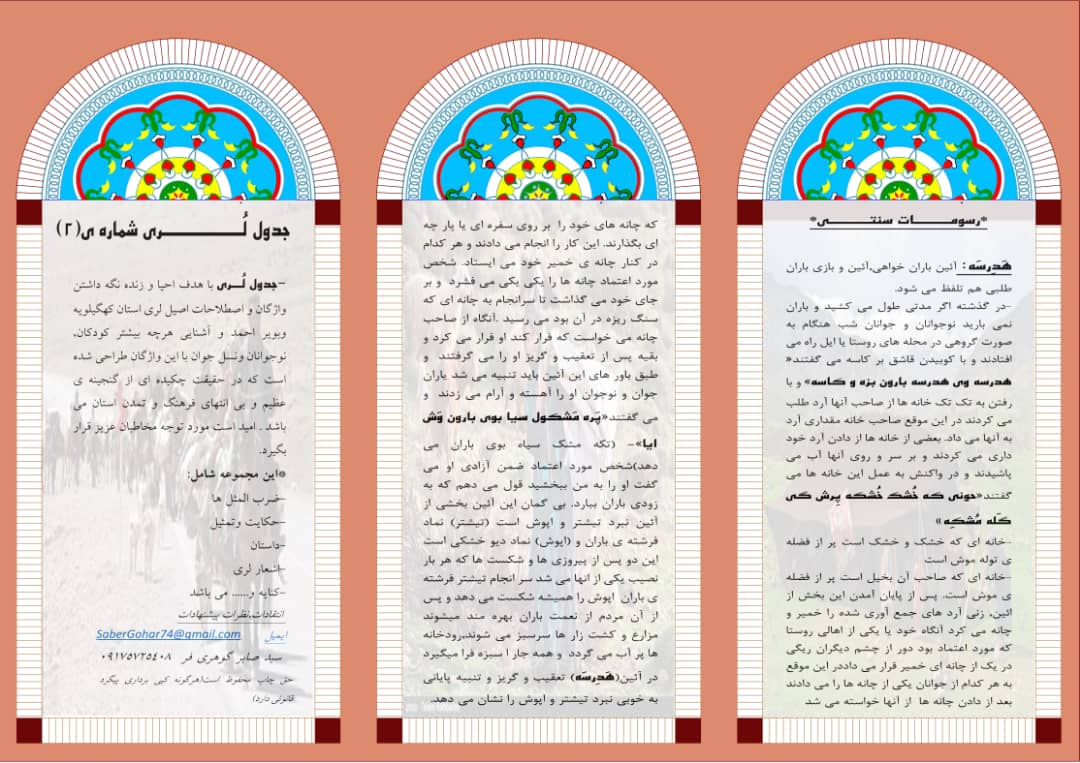 *رسومات سنتی*
هَدِرسَه: آئین باران خواهی،آئین و بازی باران
طلبی هم تلفظ می شود.
-در گذشته اگر مدتی طول می کشید و باران
نمی بارید نوجوانان و جوانان شب هنگام به
صورت گروهی در محله های روستا یا ایل راه می
افتادند و با کوبیدن قاشق بر کاسه می گفتند«
هدرسه وی هدرسه بارون بزه و کاسه» و با
رفتن به تک تک خانه ها از صاحب آنها آرد طلب
می کردند در این موقع صاحب خانه مقداری آرد
به آنها می داد. بعضی از خانه ها از دادن آرد خود
داری می کردند و بر سر و روی آنها آب می
پاشیدند و در واکنش به عمل این خانه ها می
گفتند«حونی که خُشک خُشکه پِرش کی
کَله مُشکِه»
-خانه ای که خشک و خشک است پر از فضله
ی توله موش است
-خانه ای که صاحب آن بخیل است پر از فضله
ی موش است. پس از پایان آمدن این بخش از
ائین، زنی آرد های جمع آوری شده را خمیر و
چانه می کرد آنگاه خود یا یکی از اهالی روستا
که مورد اعتماد بود دور از چشم دیگران ریگی
در یک از چانه ای خمیر قرار می داددر این موقع
به هر کدام از جوانان یکی از چانه ها را می دادند
بعد از دادن چانه ها از آنها خواسته می شد
که چانه های خود را بر روی سفره ای یا پار چه
ای بگذارند. این کار را انجام می دادند و هر کدام
در کنار چانه ی خمیر خود می ایستاد. شخص
مورد اعتماد چانه ها را یکی یکی می فشرد و بر
جای خود می گذاشت تا سرانجام به چانه ای که
سنگ ریزه در آن بود می رسید .آنگاه از صاحب
چانه می خواست که فرار کند او فرار می کرد و
بقیه پس از تعقیب و گریز او را می گرفتند و
طبق باور های این آئین باید تنبیه می شد یاران
جوان و نوجوان او را آهسته و آرام می زدند و
می گفتند«پَره مَشکول سیا بوی بارون وَش
ایا»- (تکه مشک سیاه بوی باران می
دهد)شخص مورد اعتماد ضمن آزادی او می
گفت او را به من ببخشید قول می دهم که به
زودی باران ببارد. بی گمان این آئین بخشی از
آئین نبرد تیشتر و اپوش است (تیشتر) نماد
فرشته ی باران و (اپوش) نماد دیو خشکی است
این دو پس از پیروزی ها و شکست ها که هر بار
نصیب یکی از انها می شد سر انجام تیشتر فرشته
ی باران اپوش را همیشه شکست می دهد و پس
از آن مردم از نعمت باران بهره مند میشوند
مزارع و کشت زار ها سرسبز می شوند.رودخانه
ها پر آب می گردد و همه جار ا سبزه فرا میگیرد
در آئین(هَدِرسَه) تعقیب و گریز و تنبیه پایانی
به خوبی نبرد تیشتر و اپوش را نشان می دهد.
جدول لُری شماره ی(۲)
-جدول لُری با هدف احیا و زنده نگه داشتن
واژگان و اصطلاحات اصیل لری استان کهگیلویه
وبویر احمد و آشنایی هرچه بیشتر کودکان،
نوجوانان ونسل جوان با این واژگان طراحی شده
است که در حقیقت چکیده ای از گنجینه ی
عظیم و بی انتهای فرهنگ و تمدن استان می
باشد . امید است مورد توجه مخاطبان عزیز قرار
بگیرد.
*این مجموعه شامل:
-ضرب المثل ها
-حکایت وتمثیل
-داستان
-اشعار لری
-کنایه و..... می باشد
انتقادات،نظرات پیشنهادات
ایمیل SaberGohar74@gmail.com
سید صابر گوهری فر ۰۹۱۷۵۷۲۵۴۰۸
حق چاپ محفوظ است(هرگونه کپی برداری پیگرد
قانونی دارد)